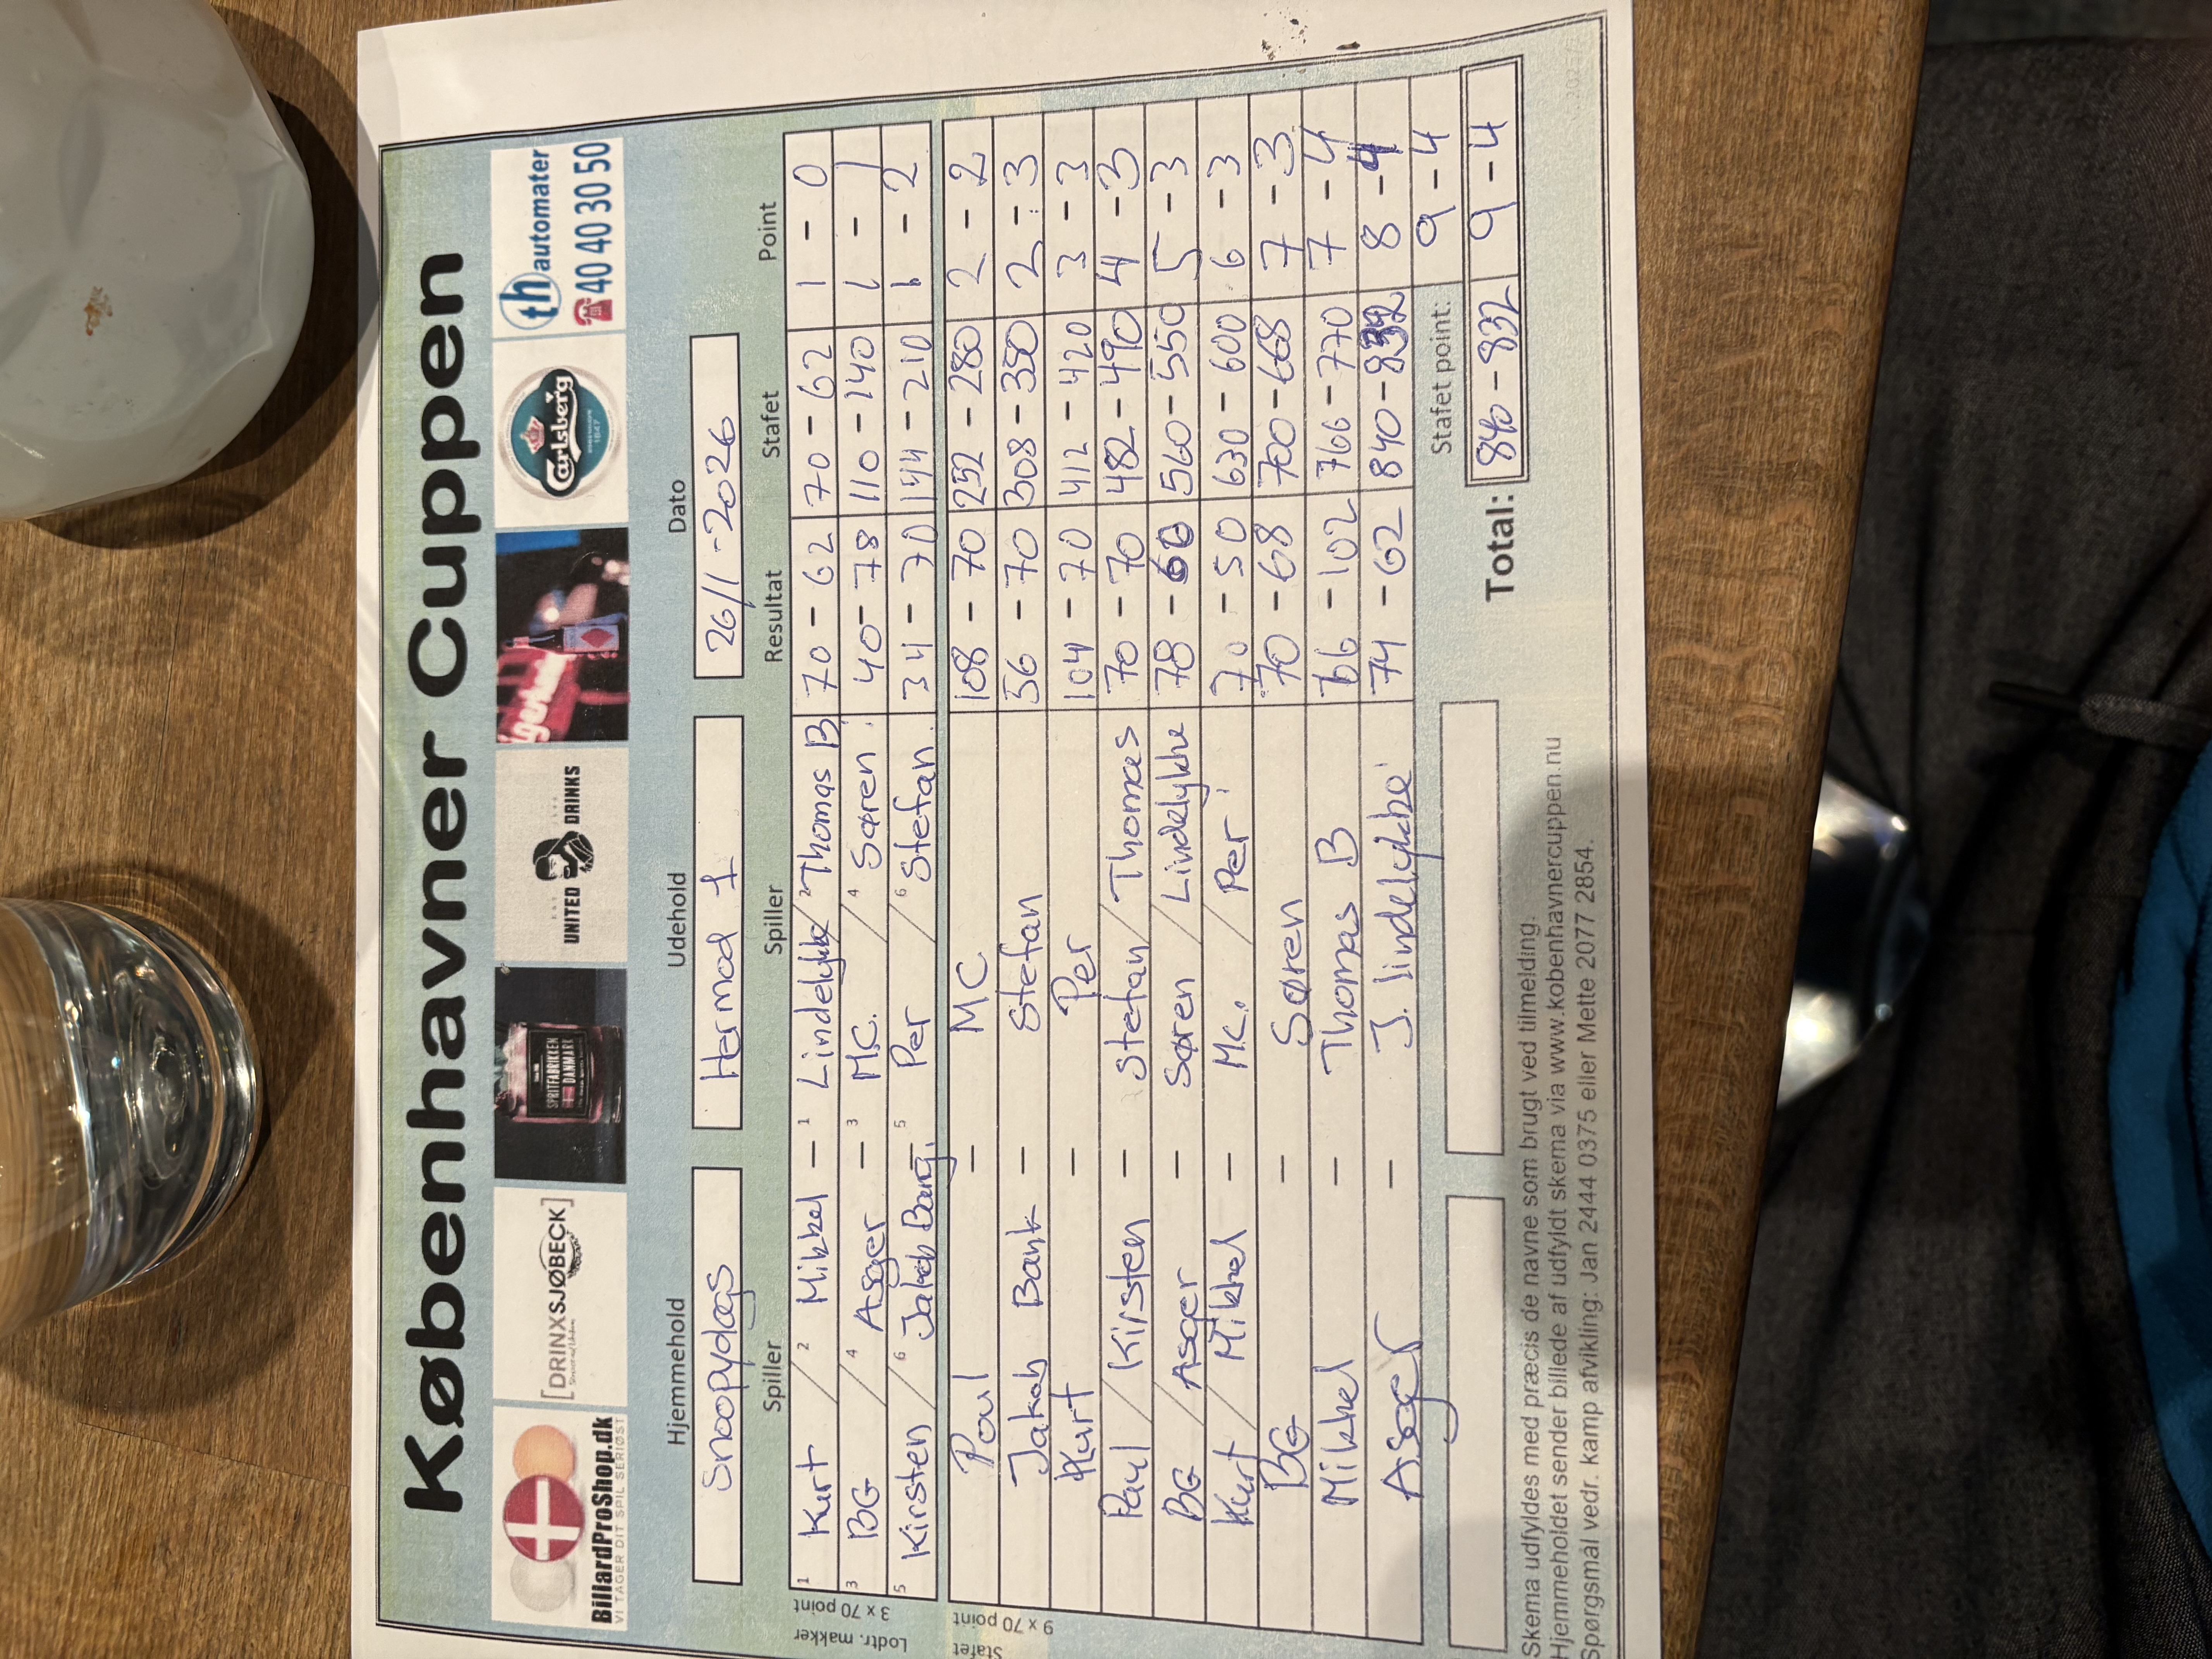 Københavner Cuppen
BillardProShop.dk
VI TAGER DIT SPIL SERIØST
[DRINXSJØBECK]
SPRITFABRIKKEN
DANMARK
UNITED DRINKS
Carlsberg
th automater
40 40 30 50
Hjemmehold Udehold Dato
Snoopydogs Hermod 1 26/1-2026
Spiller Spiller Resultat Stafet Point
Lodtr. makker
3 x 70 point
1 Kurt / 2 Mikkel - 1 Lindelykke / 2 Thomas B 70 - 62 70 - 62 1 - 0
3 BG / 4 Asger - 3 MC. / 4 Søren 40 - 78 110 - 140 1 - 1
5 Kirsten / 6 Jakob Bang 5 Per / 6 Stefan 34 - 70 144 - 210 1 - 2
Stafet
9 x 70 point
Poul - MC 108 - 70 252 - 280 2 - 2
Jakob Bank - Stefan 56 - 70 308 - 350 2 - 3
Kurt - Per 104 - 70 412 - 420 3 - 3
Paul / Kirsten - Stefan / Thomas 70 - 70 482 - 490 4 - 3
BG / Asger - Søren / Lindelykke 78 - 60 560 - 550 5 - 3
Kurt / Mikkel - MC. / Per 70 - 50 630 - 600 6 - 3
BG - Søren 70 - 68 700 - 668 7 - 3
Mikkel - Thomas B 66 - 102 766 - 770 7 - 4
Asger - J. lindelykke 74 - 62 840 - 832 8 - 4
Stafet point: 9 - 4
Total: 840 - 832 9 - 4
Skema udfyldes med præcis de navne som brugt ved tilmelding.
Hjemmeholdet sender billede af udfyldt skema via www.kobenhavnercuppen.nu
Spørgsmål vedr. kamp afvikling: Jan 2444 0375 eller Mette 2077 2854.